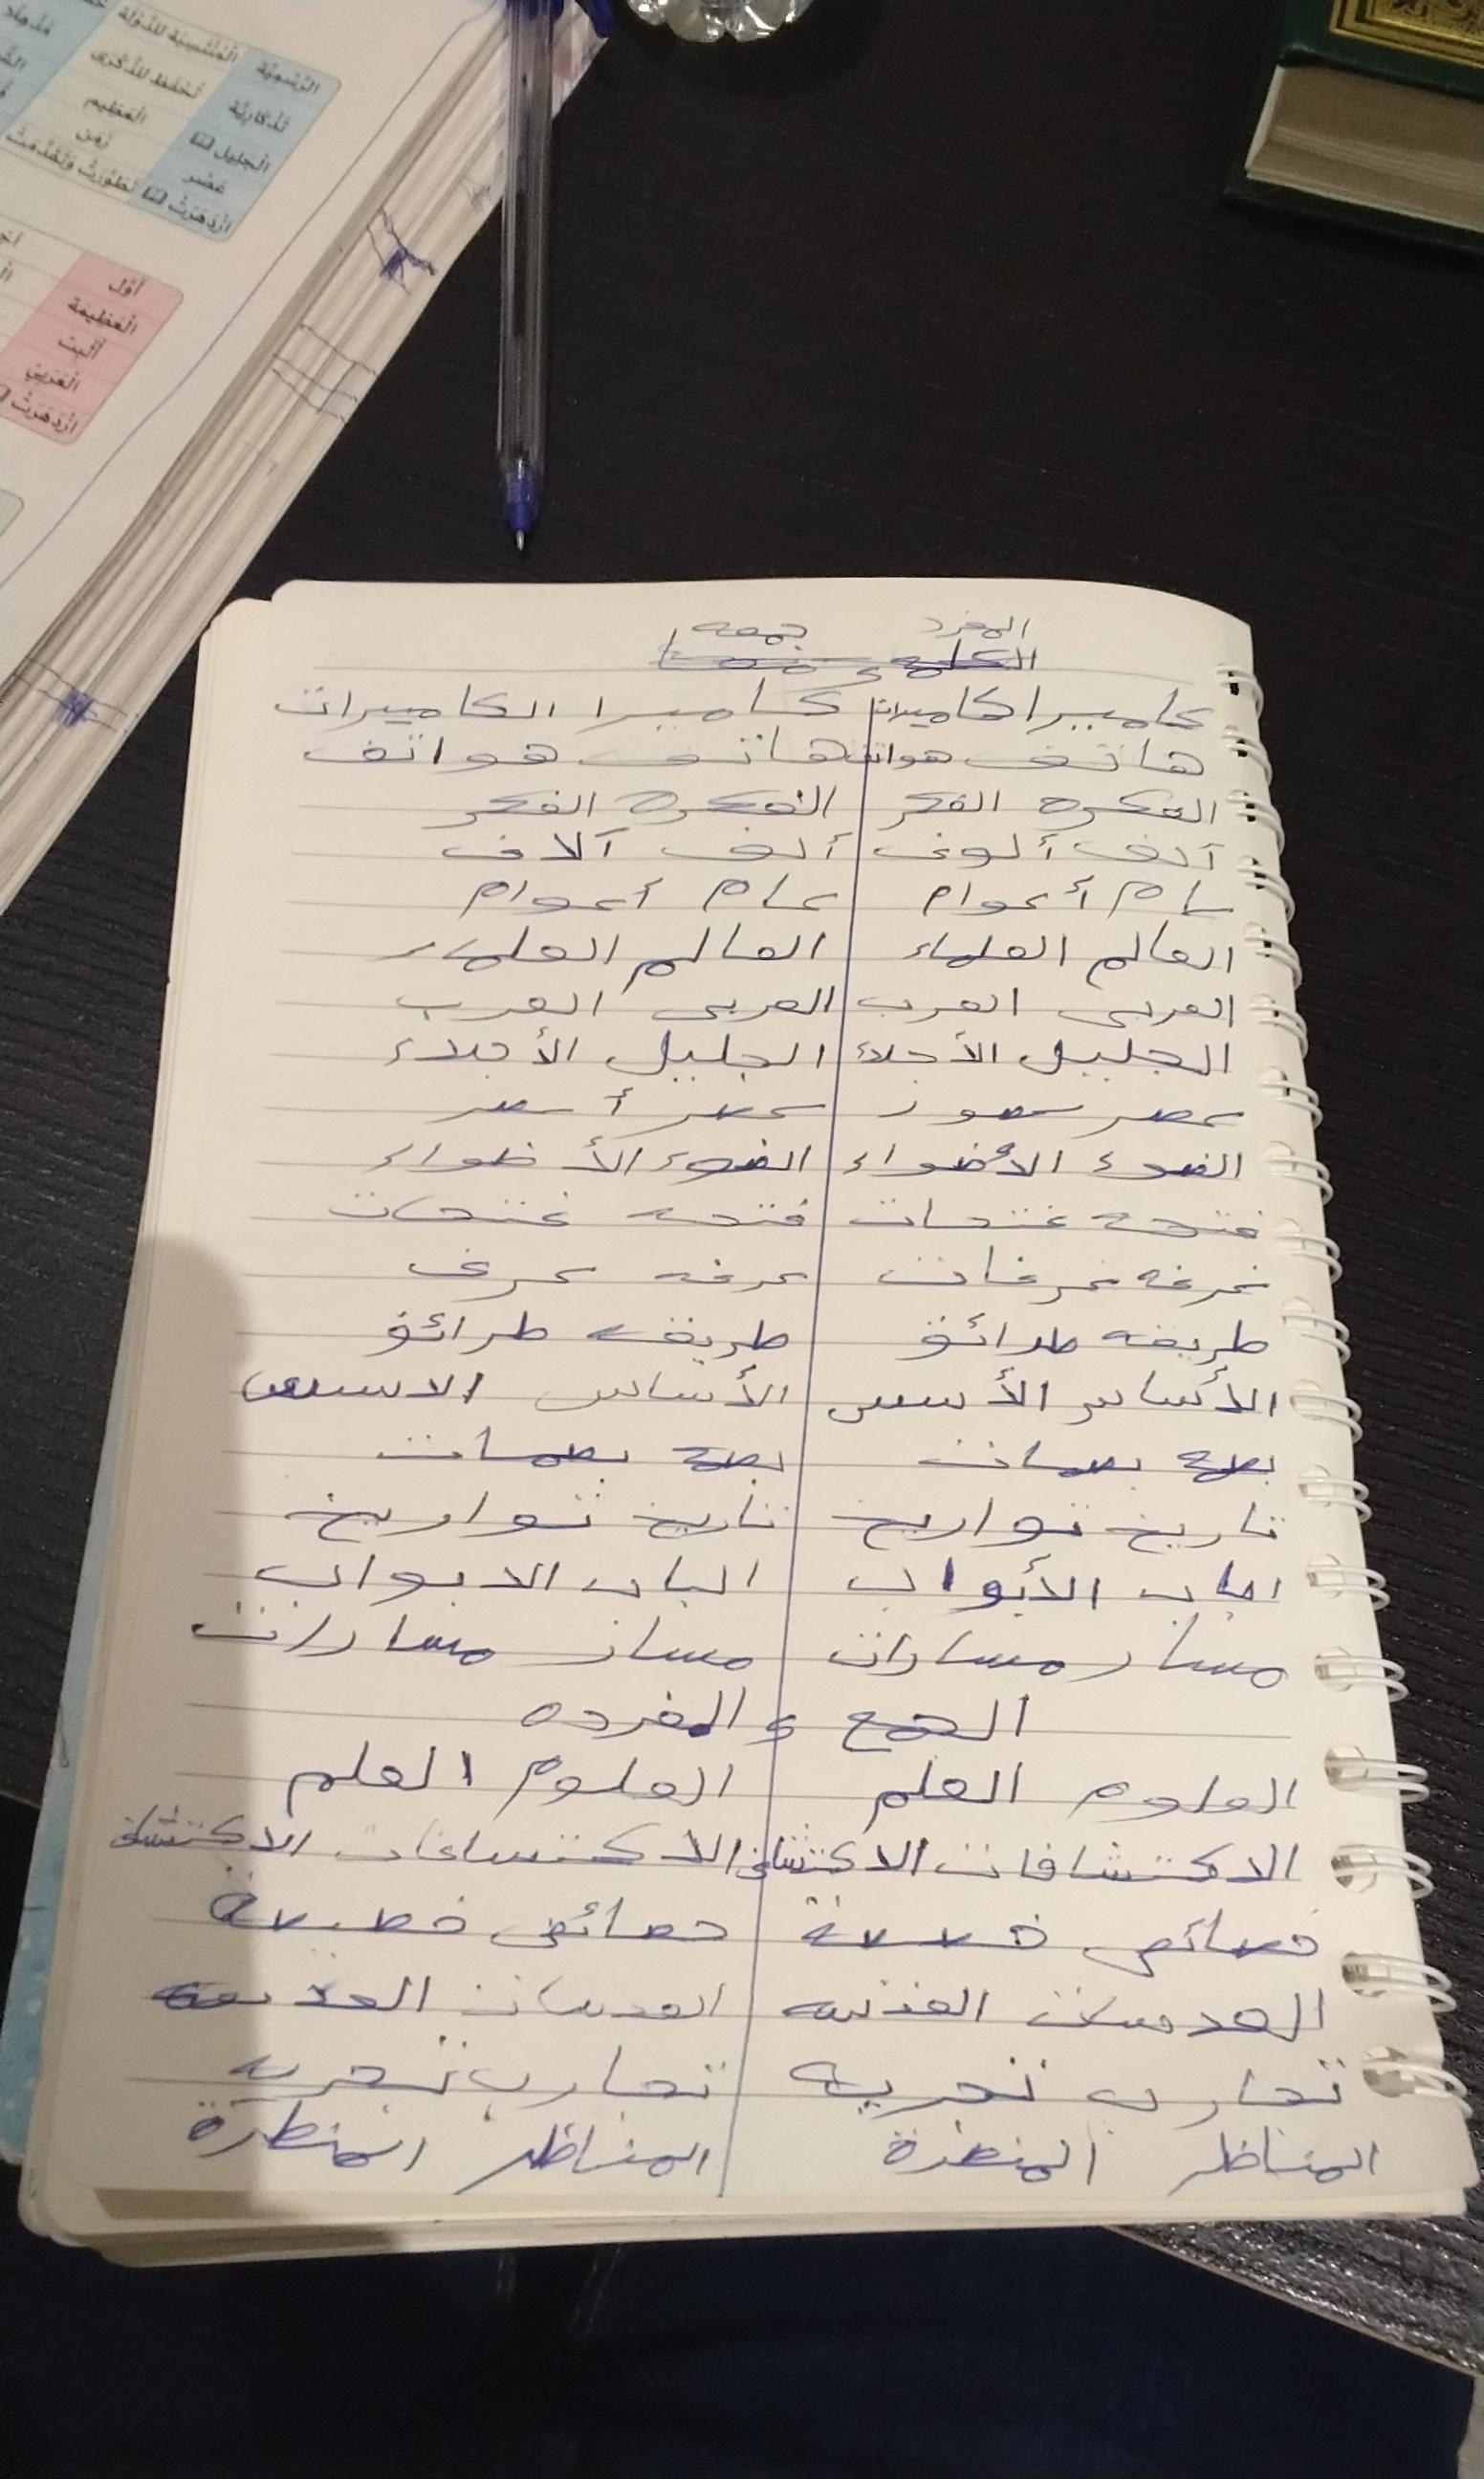 الرسمية المنتسبة للدولة
تذكارية تحفظ للذكرى
الجليل العظيم
عصر زمن
ازدهرت تطورت وتقدمت
أول
العظيمة
أثبت
العربي
ازدهرت
المفرد جمعه
كاميرا كاميرات كاميرا الكاميرات
هاتف هواتف هاتف هواتف
الفكره الفكر الفكره الفكر
ألف ألوف ألف آلاف
عام أعوام عام أعوام
العالم العلماء العالم العلماء
العربي العرب العربي العرب
الجليل الأجلاء الجليل الأجلاء
عصر عصور عصر أعصر
الضوء الأضواء الضوء الأظواء
فتحه فتحات فتحه فتحات
غرفه غرفات غرفه غرف
طريقه طرائق طريقه طرائق
الأساس الأسس الأساس الاسس
تاريخ تواريخ تاريخ تواريخ
الباب الأبواب الباب الابواب
مسار مسارات مسار مسارات
الجمع و المفرده
العلوم العلم العلوم العلم
الاكتشافات الاكتشاف الاكتشافات الاكتشاف
خصائص خصائص
العدسات العدسات
تجارب تجربه تجارب تجربه
المناظر المنضرة المناظر المنظرة